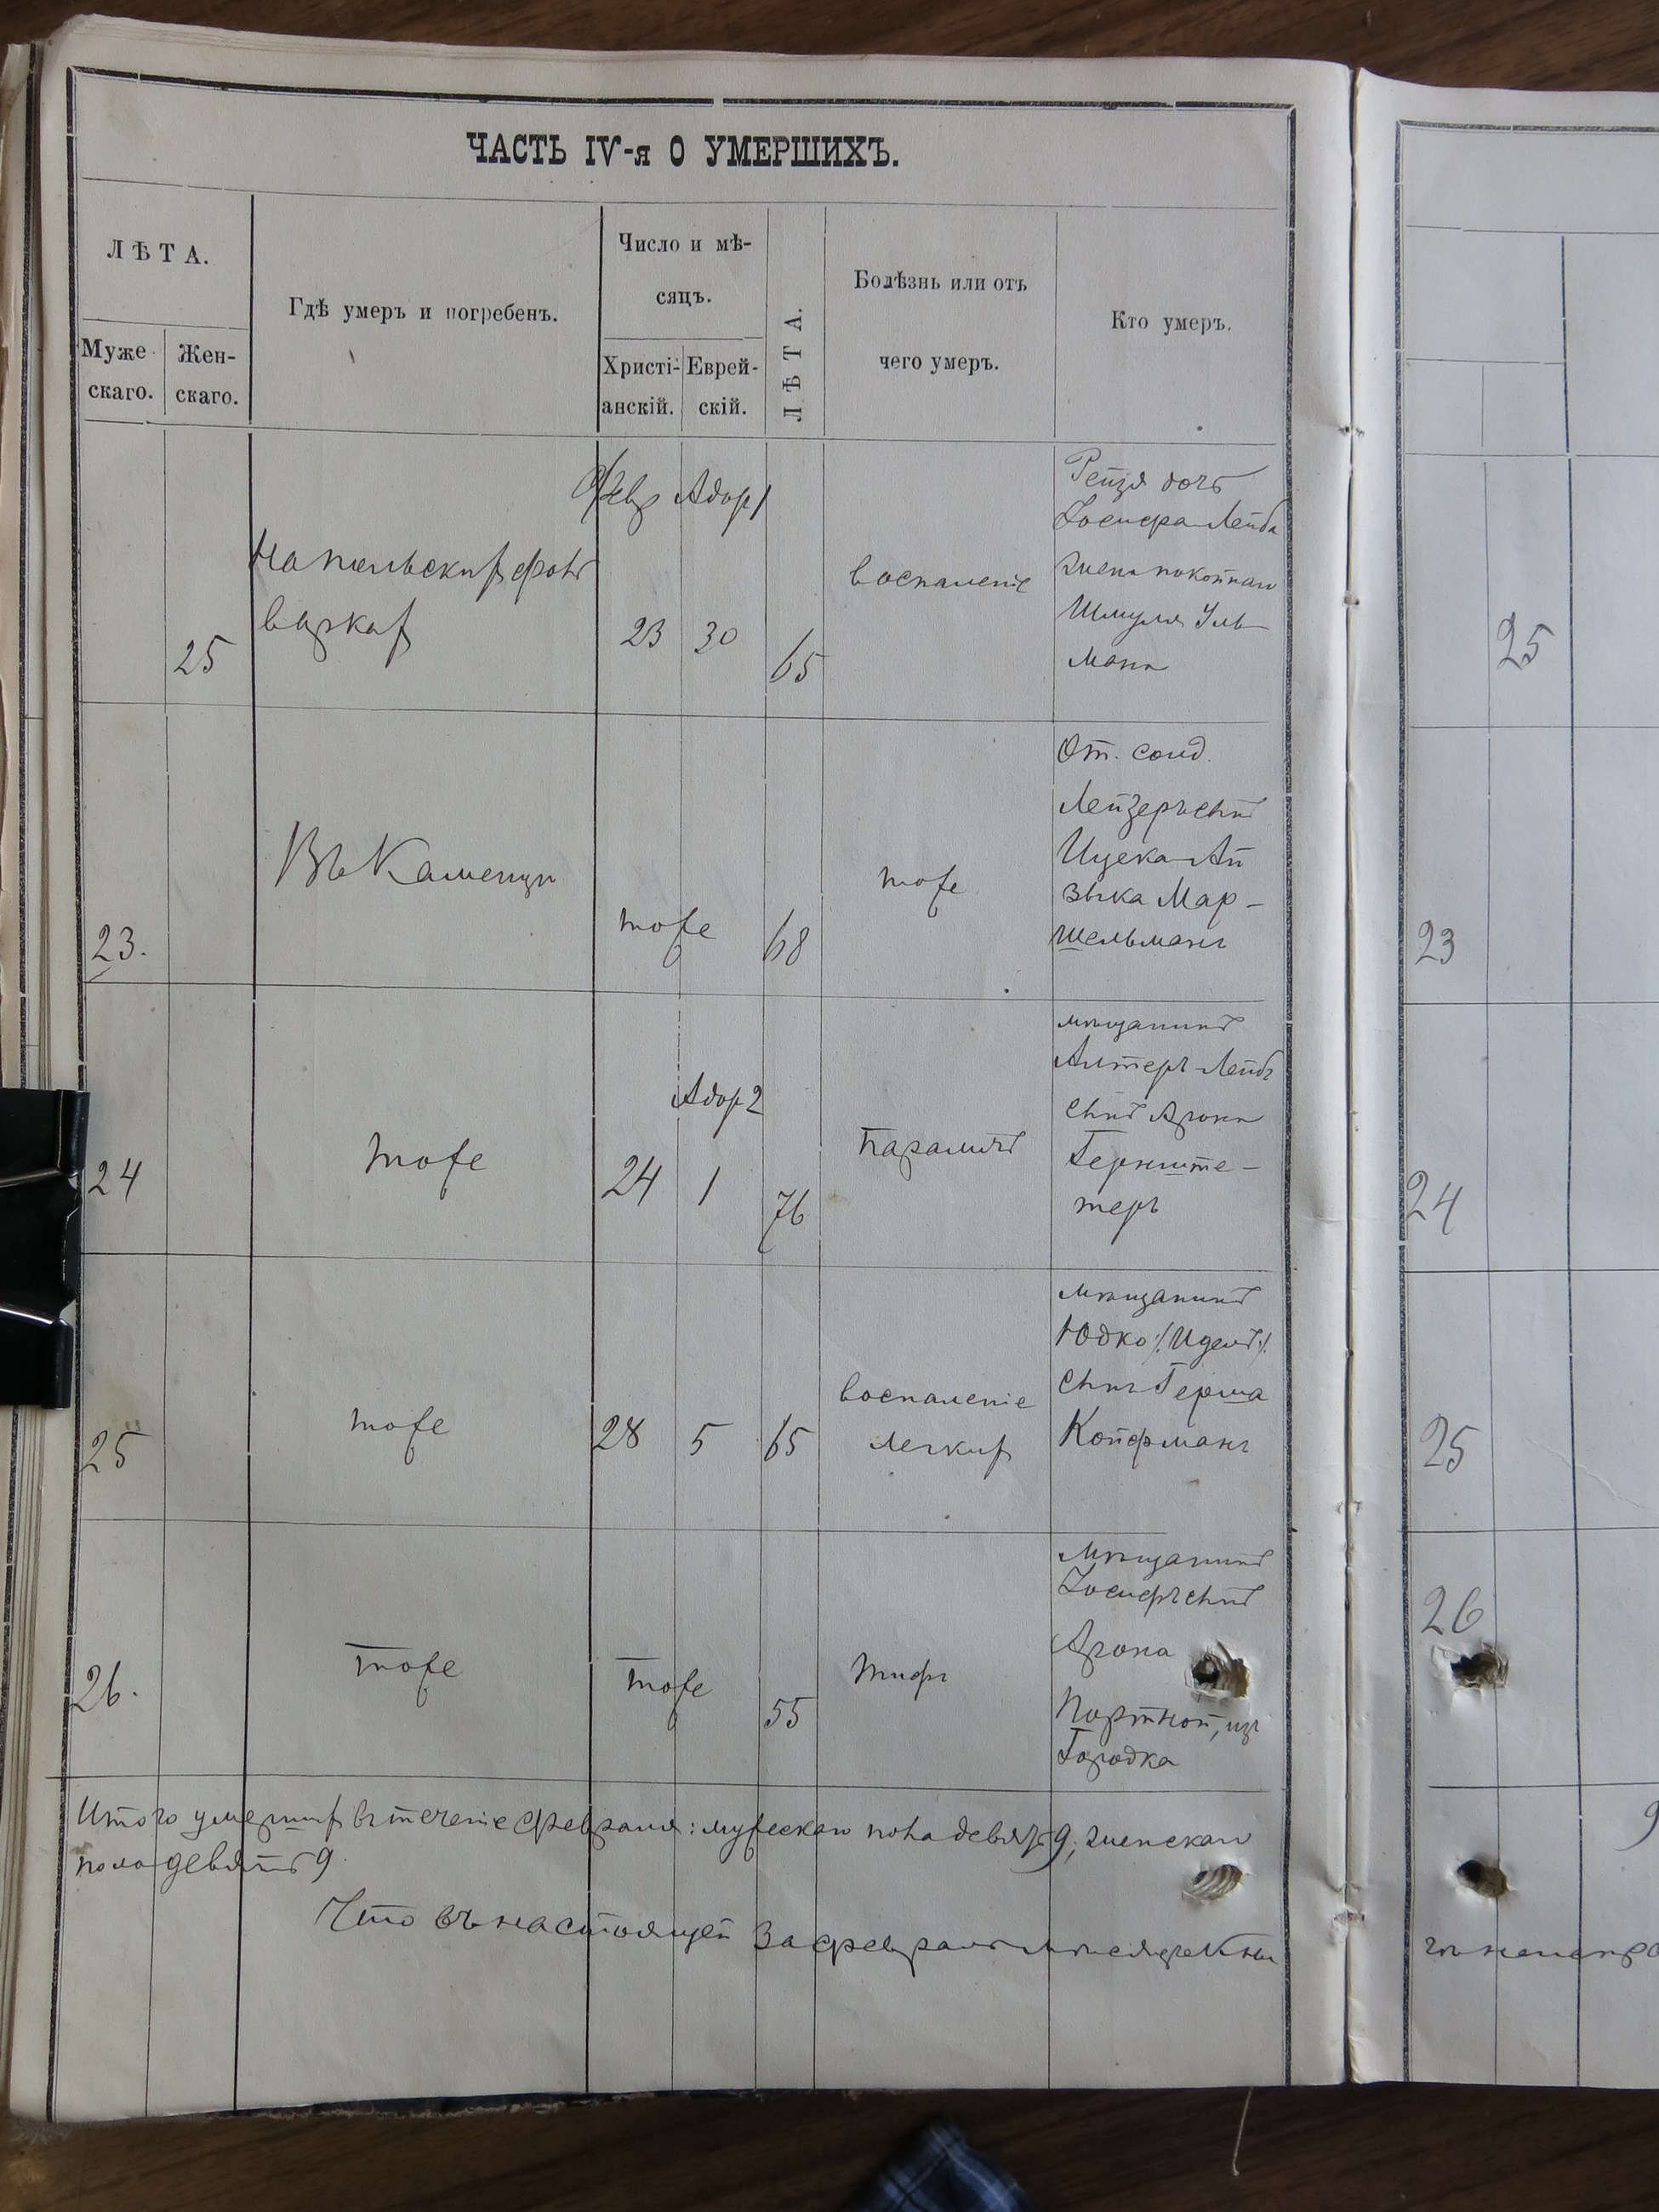 ЧАСТЬ IV-я О УМЕРШИХЪ.
ЛѢТА.
Муже
скаго.
Жен-
скаго.
Гдѣ умеръ и погребенъ.
Число и мѣ-
сяцъ.
Христі-
анскій.
Еврей-
скій.
ЛѢТА.
Болѣзнь или отъ
чего умеръ.
Кто умеръ.
25
На польскихъ фоль
варкахъ
Февр Адор 1
23 30
65
воспаленіе
Рейзя дочь
Іосифа-Лейба
жена покойнаго
Шмуля Уль-
мана
25
23.
Въ Каменцѣ
тоже
68
тоже
От. солд.
Лейзеръ сынъ
Ицека-Ай
зыка Мар-
шельманъ
23
24
тоже
Адор 2
24 1
76
параличъ
мѣщанинъ
Алтеръ-Лейбъ
сынъ Арона
Гернште-
теръ
24
25
тоже
28 5
65
воспаленіе
легкихъ
мѣщанинъ
Юдко /Идель/
сынъ Герша
Койфманъ
25
26.
тоже
тоже
55
тифъ
мѣщанинъ
Іосифъ сынъ
Арона
Портной, изъ
Городка
26
Итого умершихъ въ теченіе февраля: мужескаго пола девять 9, женскаго
пола девять 9.
9
Что въ настоящей за февраль мѣсяцъ кни